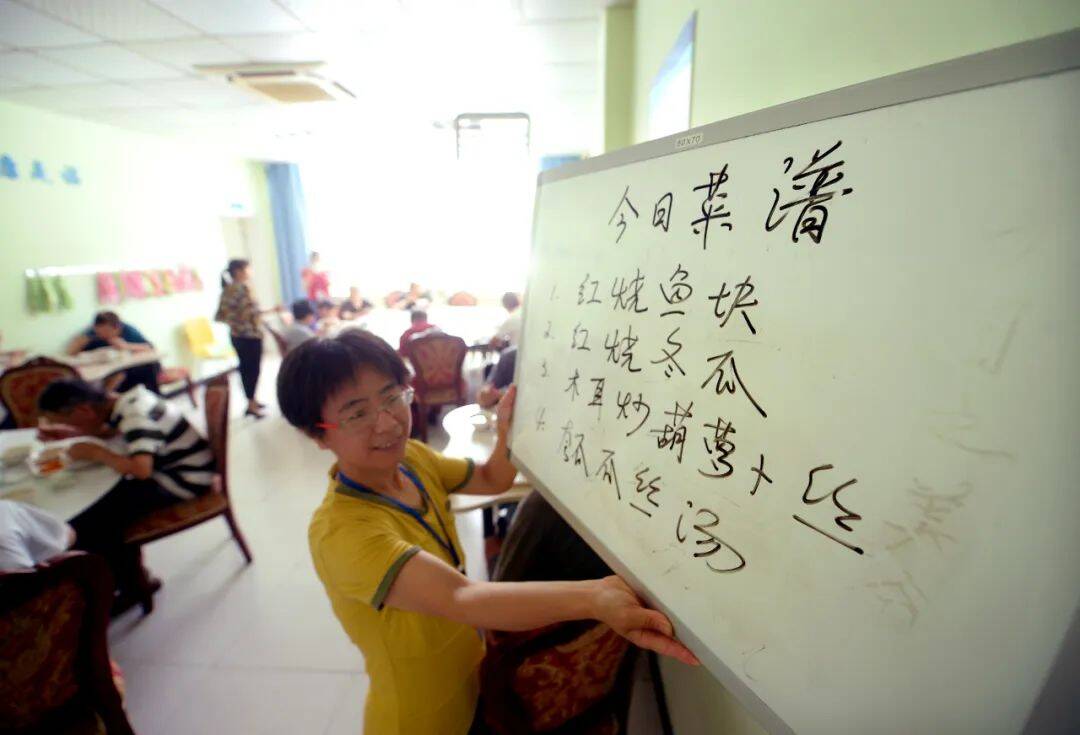 今日菜潽
1. 红烧鱼块
2. 红烧冬瓜
3. 木耳炒葫萝卜丝
4. 瓠瓜丝汤